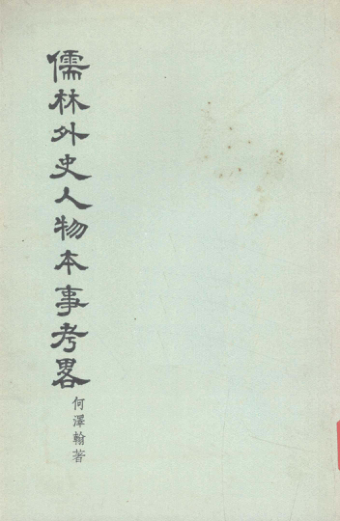 儒林外史人物本事考畧
何澤翰著